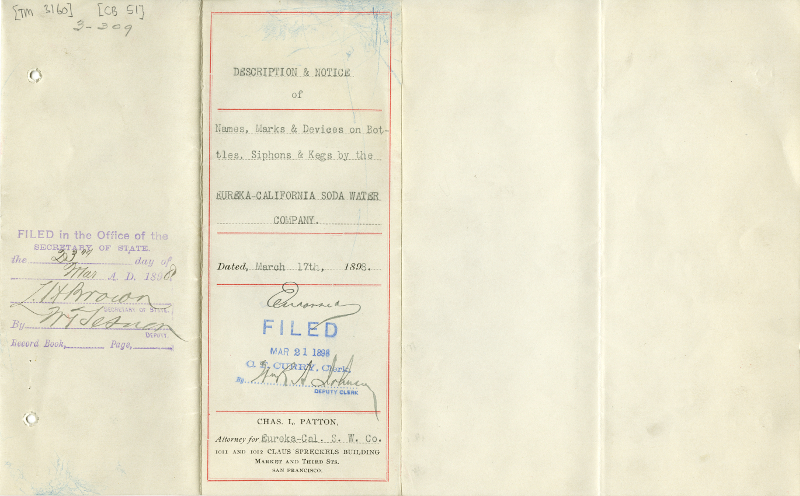 [TM 3160] [CB 51]
3-309
FILED in the Office of the
SECRETARY OF STATE.
the 23rd day of
Mar A. D. 1898
L H Brown
SECRETARY OF STATE.
By
DEPUTY.
Record Book, Page,
DESCRIPTION & NOTICE
of
Names, Marks & Devices on Bot-
tles, Siphons & Kegs by the
EUREKA-CALIFORNIA SODA WATER
COMPANY.
Dated, March 17th, 1898.
Endorsed
FILED
MAR 21 1898
C. F. CURRY, Clerk.
By
DEPUTY CLERK
CHAS. L. PATTON,
Attorney for Eureka-Cal. S. W. Co.
1011 AND 1012 CLAUS SPRECKELS BUILDING
MARKET AND THIRD STS.
SAN FRANCISCO.